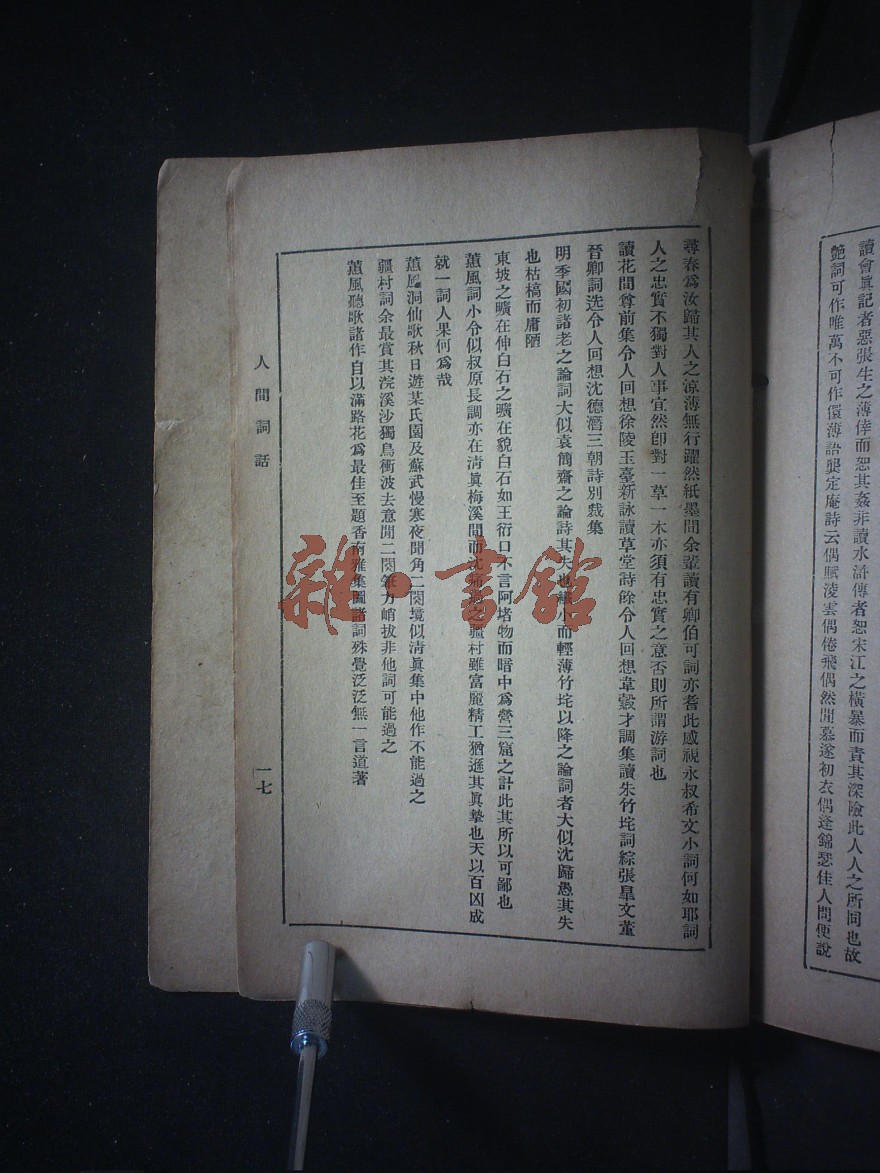 讀會眞記者惡張生之薄倖而恕其姦非讀水滸傳者恕宋江之橫暴而責其深險此人人之所同也故
艶詞可作唯萬不可作儇薄語龔定庵詩云偶賦淩雲偶倦飛偶然閒慕遂初衣偶逢錦瑟佳人問便說
尋春爲汝歸其人之涼薄無行躍然紙墨間余輩讀耆卿伯可詞亦有此感視永叔希文小詞何如耶詞
人之忠實不獨對人事宜然卽對一草一木亦須有忠實之意否則所謂游詞也
讀花間尊前集令人回想徐陵玉臺新詠讀草堂詩餘令人回想韋縠才調集讀朱竹垞詞綜張臯文董
晉卿詞选令人回想沈德潛三朝詩別裁集
明季國初諸老之論詞大似袁簡齋之論詩其失也纖小而輕薄竹垞以降之論詞者大似沈歸愚其失
也枯槁而庸陋
東坡之曠在伸白石之曠在貌白石如王衍口不言阿堵物而暗中爲營三窟之計此其所以可鄙也
蕙風詞小令似叔原長調亦在淸眞梅溪間而沈痛過之彊村雖富麗精工猶遜其眞摯也天以百凶成
就一詞人果何爲哉
蕙風洞仙歌秋日遊某氏園及蘇武慢寒夜聞角二闋境似淸眞集中他作不能過之
彊村詞余最賞其浣溪沙獨鳥衝波去意閒二闋筆力峭拔非他詞可能過之
蕙風聽歌諸作自以滿路花爲最佳至題香南雅集圖諸詞殊覺泛泛無一言道著
人間詞話
一七
雜·書館